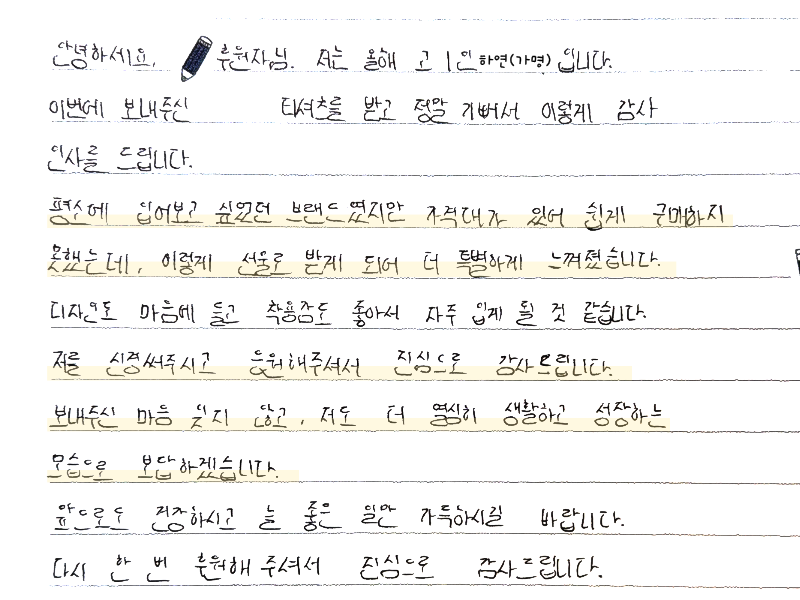 안녕하세요, 후원자님. 저는 올해 고1인 하연(가명)입니다.
이번에 보내주신 티셔츠를 받고 정말 기뻐서 이렇게 감사
인사를 드립니다.
평소에 입어보고 싶었던 브랜드였지만 가격대가 있어 쉽게 구매하지
못했는데, 이렇게 선물로 받게 되어 더 특별하게 느껴졌습니다.
디자인도 마음에 들고 착용감도 좋아서 자주 입게 될 것 같습니다.
저를 신경써주시고 응원해주셔서 진심으로 감사드립니다.
보내주신 마음 잊지 않고, 저도 더 열심히 생활하고 성장하는
모습으로 보답하겠습니다.
앞으로도 건강하시고 늘 좋은 일만 가득하시길 바랍니다.
다시 한 번 후원해 주셔서 진심으로 감사드립니다.